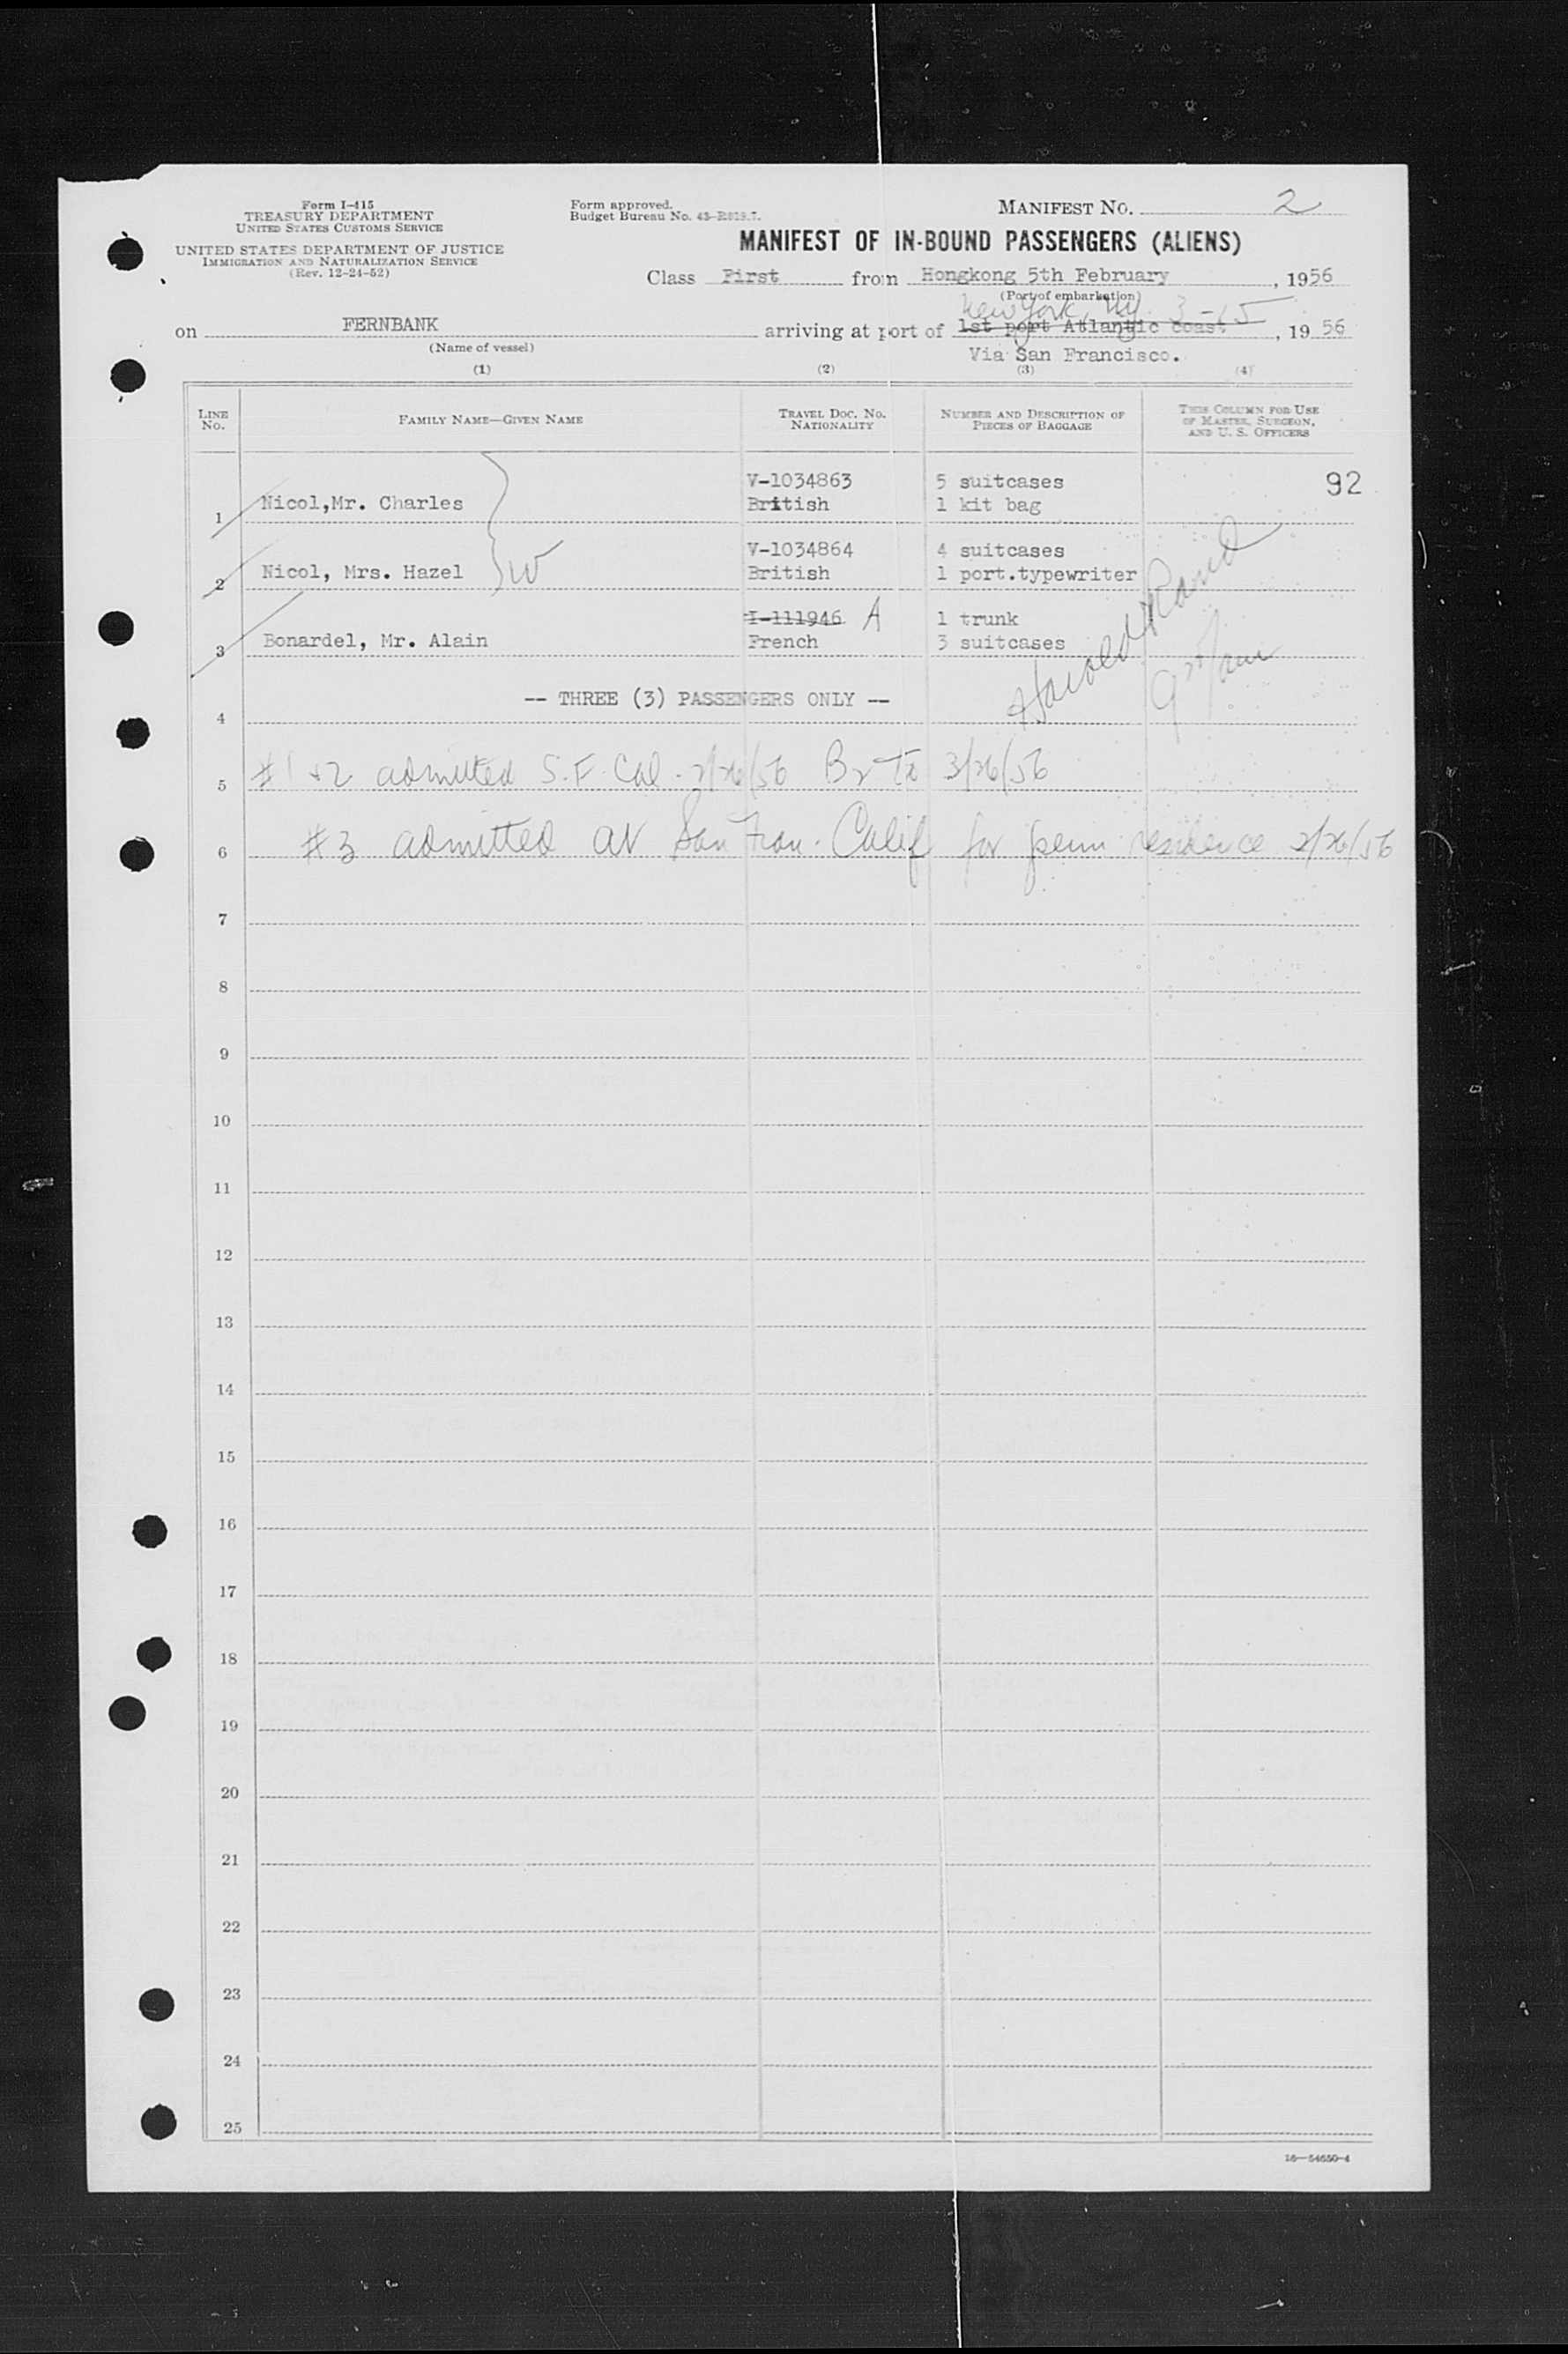 Form I-415
TREASURY DEPARTMENT
UNITED STATES CUSTOMS SERVICE
UNITED STATES DEPARTMENT OF JUSTICE
IMMIGRATION AND NATURALIZATION SERVICE
(Rev. 12-24-52)
Form approved.
Budget Bureau No. 43-R019.7.
MANIFEST NO. 2
MANIFEST OF IN-BOUND PASSENGERS (ALIENS)
Class First from Hongkong 5th February, 1956
(Port of embarkation)
New York, NY. 3-15
on FERNBANK arriving at port of 1st port Atlantic coast, 1956
(Name of vessel)
Via San Francisco.
(1) (2) (3) (4)
LINE NO. FAMILY NAME—GIVEN NAME TRAVEL DOC. NO. NATIONALITY NUMBER AND DESCRIPTION OF PIECES OF BAGGAGE THIS COLUMN FOR USE OF MASTER, SURGEON, AND U. S. OFFICERS
V-1034863 5 suitcases 92
1 Nicol,Mr. Charles British 1 kit bag
V-1034864 4 suitcases
2 Nicol, Mrs. Hazel W British 1 port.typewriter
I-111946 A 1 trunk
3 Bonardel, Mr. Alain French 3 suitcases
Harold
-- THREE (3) PASSENGERS ONLY --
4
5 #1+2 admitted S.F. Cal - 2/26/56 Br Tr 3/26/56
6 #3 admitted at San Fran. Calif for perm residence 2/26/56
7
8
9
10
11
12
13
14
15
16
17
18
19
20
21
22
23
24
25
16—54650-4